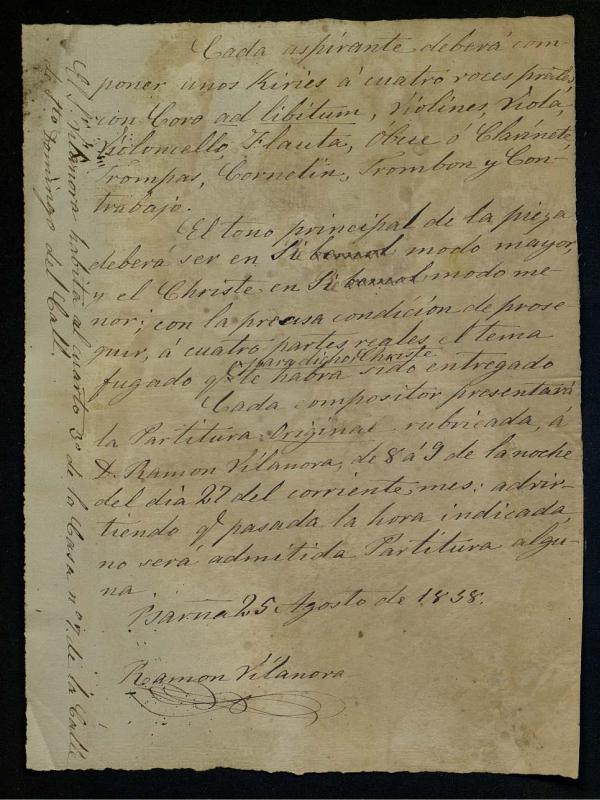 Cada aspirante deberá com-
poner unos Kiries á cuatro voces prâles,
con Coro ad libitum, Violines, Viola,
Violoncello, Flauta, Obue ó Clarinete,
Trompas, Cornetin, Trombon y Con-
trabajo.
El tono principal de la pieza
deberá ser en Si bemol modo mayor,
y el Christe en Si bemol modo me-
nor; con la precisa condición de prose-
guir, á cuatro partes reales, el tema
para dicho Christe
fugado q.e le habrá sido entregado
Cada compositor presentará
la Partitura Original rubricada, á
D. Ramon Vilanova, de 8 á 9 de la noche
del dia 27 del corriente mes: advir-
tiendo q.e pasada la hora indicada
no será admitida Partitura algu-
na.
Barña 25 Agosto de 1838.
Ramon Vilanova
El S.r Vilanova habita al cuarto 3.o de la Casa n.o 7 de la Calle
de S.to Domingo del Call.